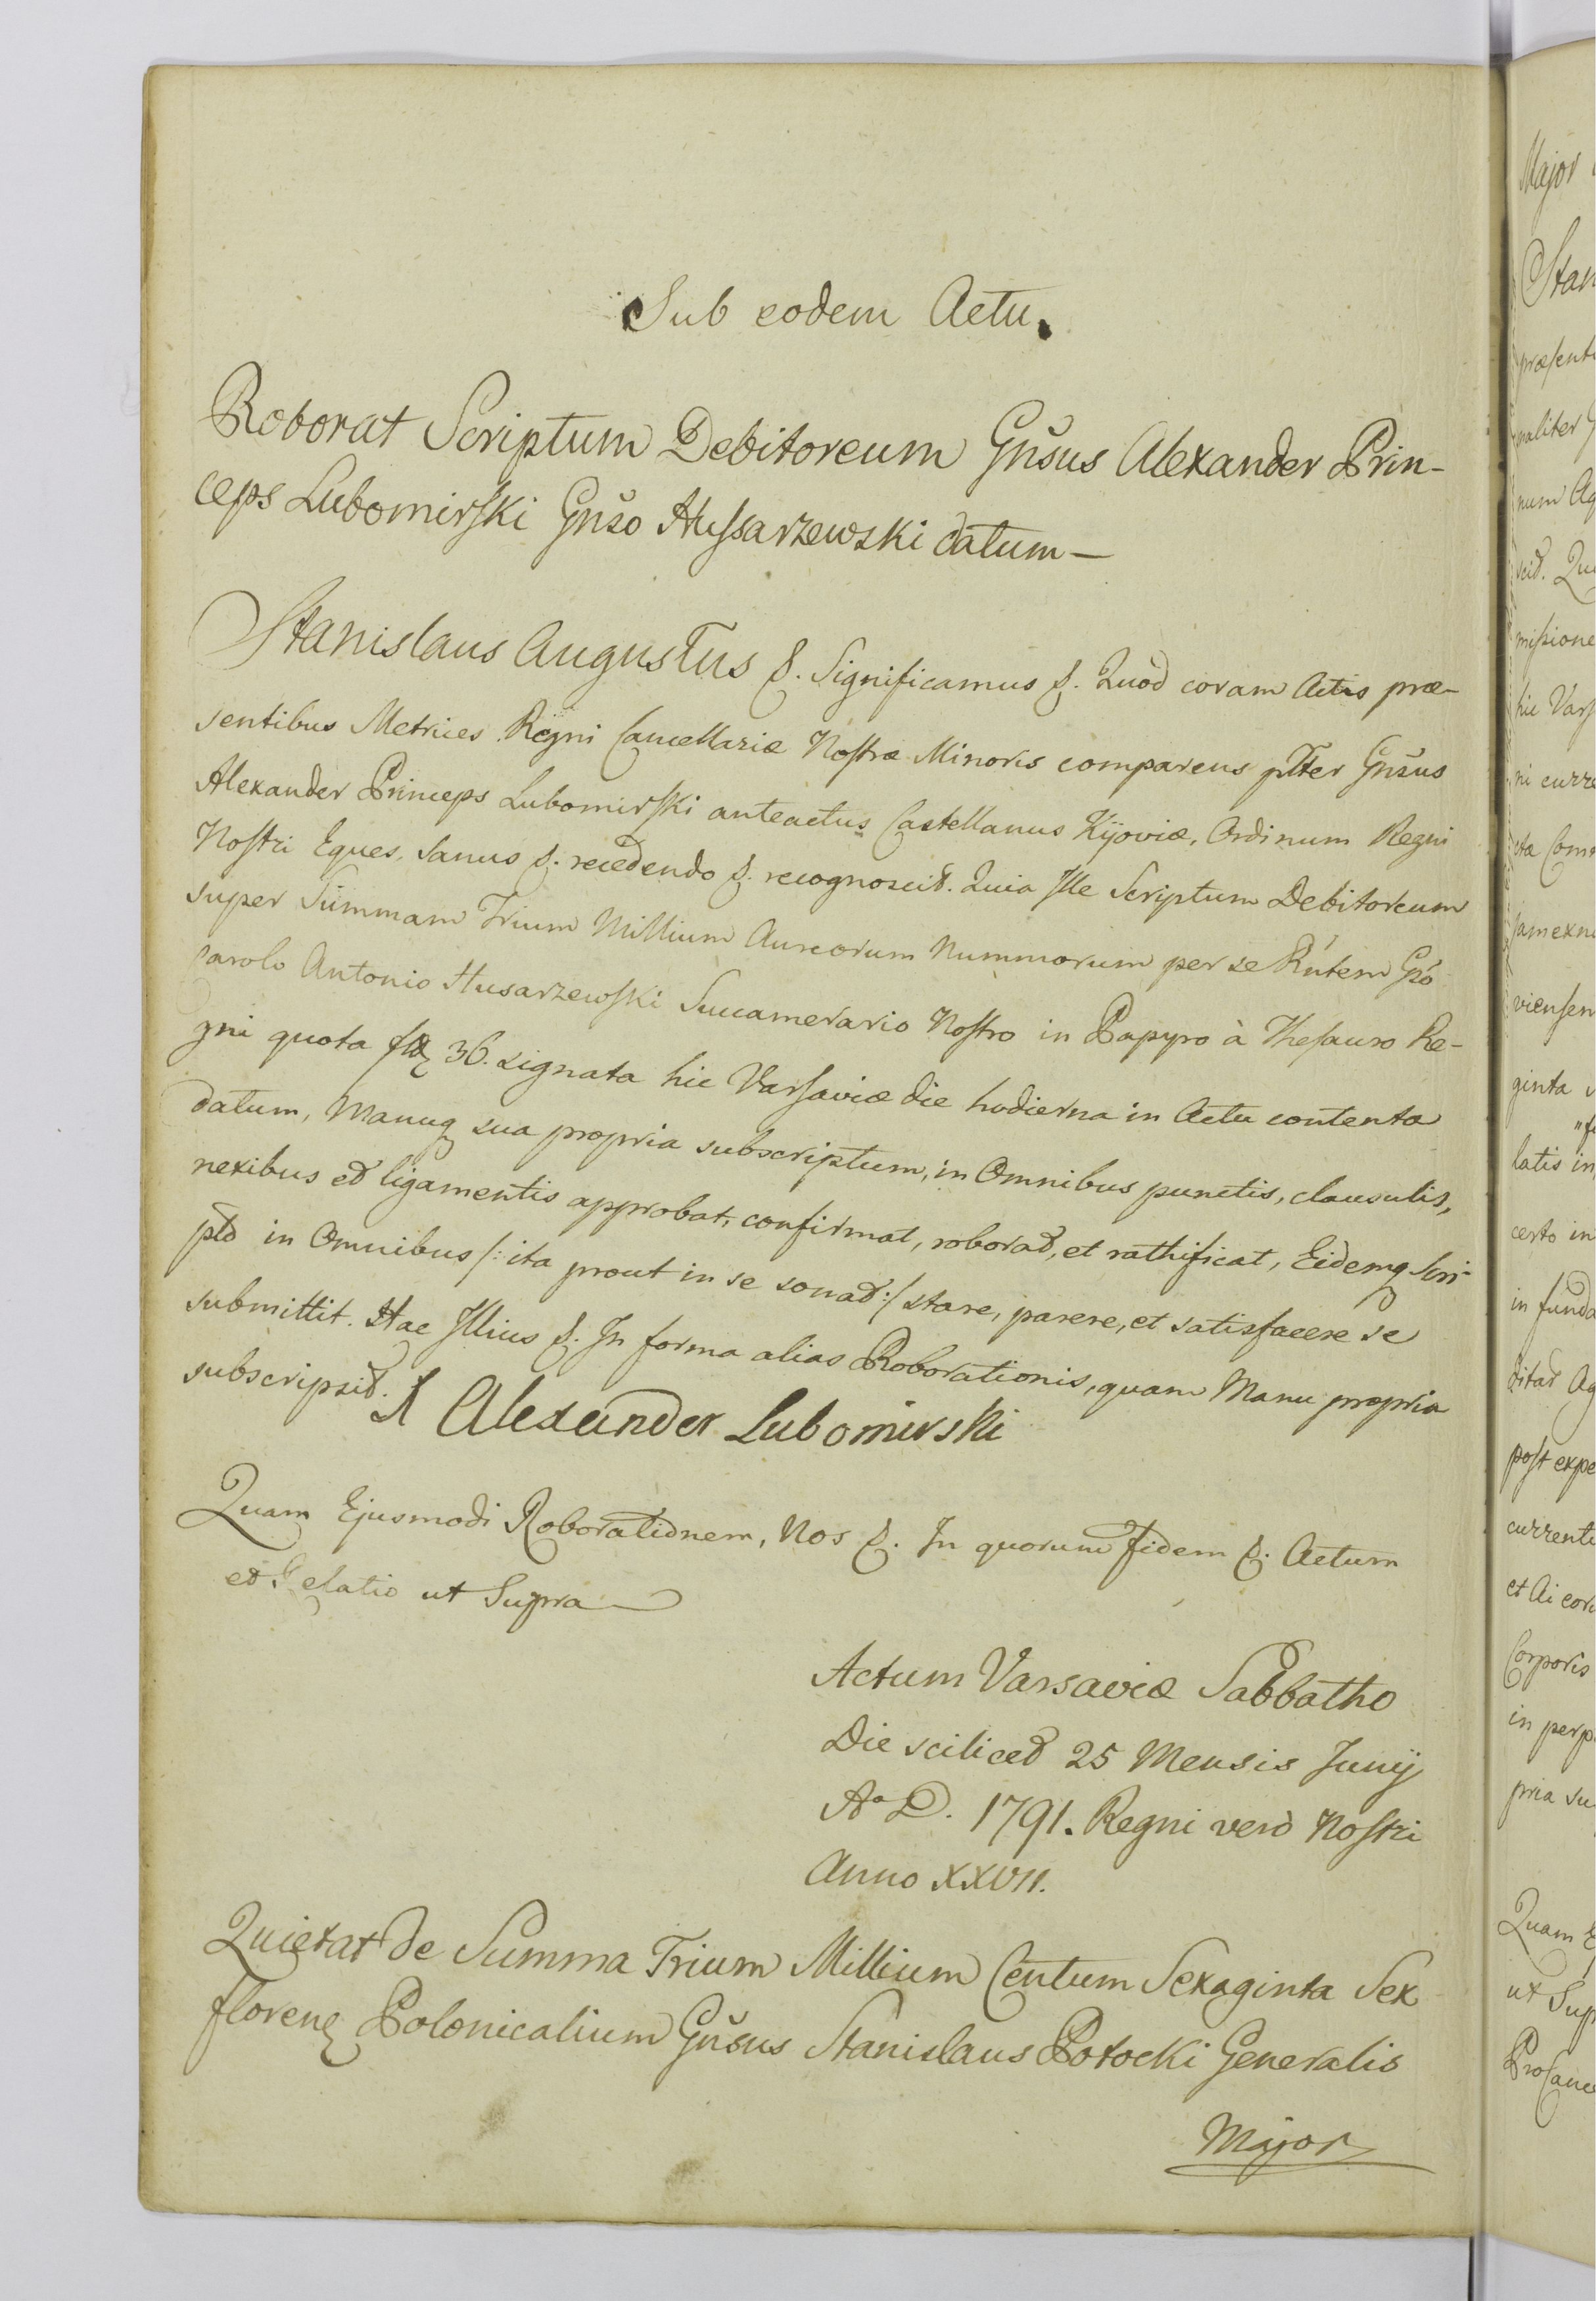 Sub eodem Actu.
Roborat Scriptum Debitoreum Gnsus Alexander Prin-
ceps Lubomirski Gnso Hussarzewski datum —
Stanislaus Augustus &. Significamus &. Quod coram Actis præ-
sentibus Metrices Regni Cancellariæ Nostræ Minoris comparens plter Gnsus
Alexander Princeps Lubomirski anteactus Castellanus Kijoviæ, Ordinum Regni
Nostri Eques, Sanus &. recedendo &. recognoscit. Quia Ille Scriptum Debitoreum
super Summam Trium Millium Aureorum Nummorum per se Rntem Gso
Carolo Antonio Husarzewski Succamerario Nostro in Papyro à Thesauro Re-
gni quota 36. signata hic Varsaviæ die hodierna in Actu contenta
datum, Manuq sua propria subscriptum, in Omnibus punctis, clausulis,
nexibus et ligamentis approbat, confirmat, roborat, et rathificat, Eidemq Scri-
pto in Omnibus /: ita prout in se sonat :/ stare, parere, et satisfacere se
submittit. Hac Illius &. In forma alias Roborationis, quam Manu propria
subscripsit. A Alexander Lubomirski
Quam Ejusmodi Roborationem, Nos &. In quorum Fidem &. Actum
et Relatio ut Supra —
Actum Varsaviæ Sabbatho
Die scilicet 25 Mensis Junij
Ao D. 1791. Regni verò Nostri
Anno XXVII.
Quietat de Summa Trium Millium Centum Sexaginta Sex
florenq Polonicalium Gnsus Stanislaus Potocki Generalis
Major